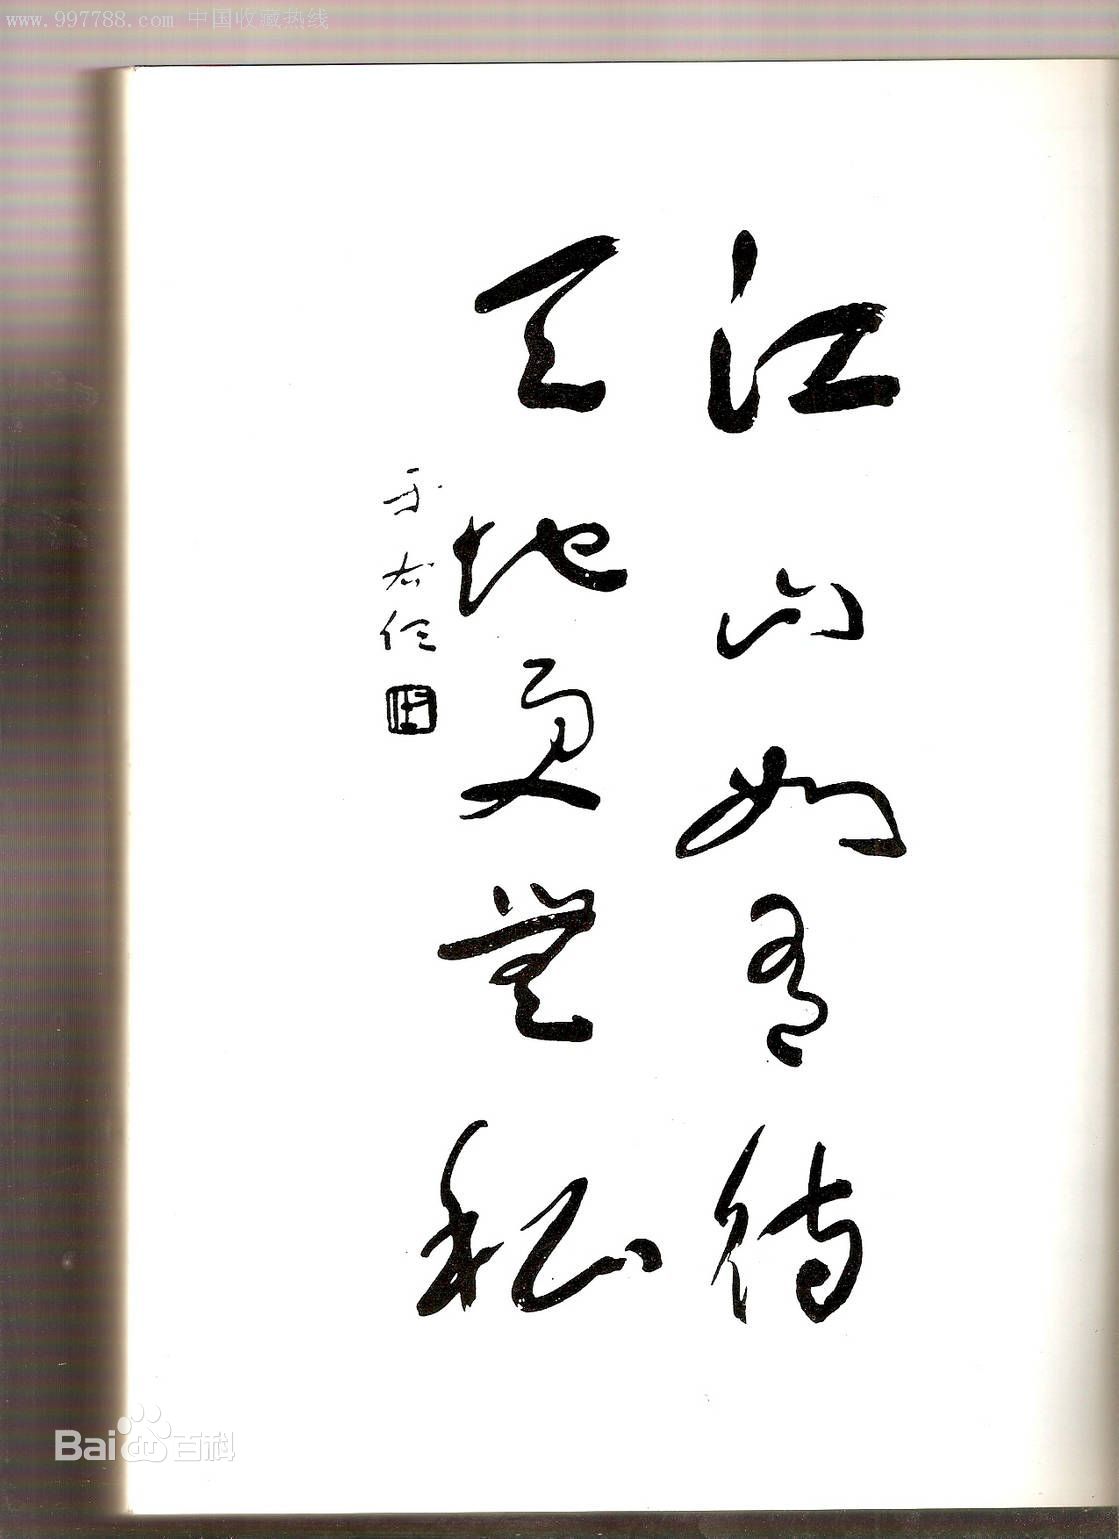 www.997788.com 中国收藏热线
江山如有待
天地更無私
于右任
Bai百科